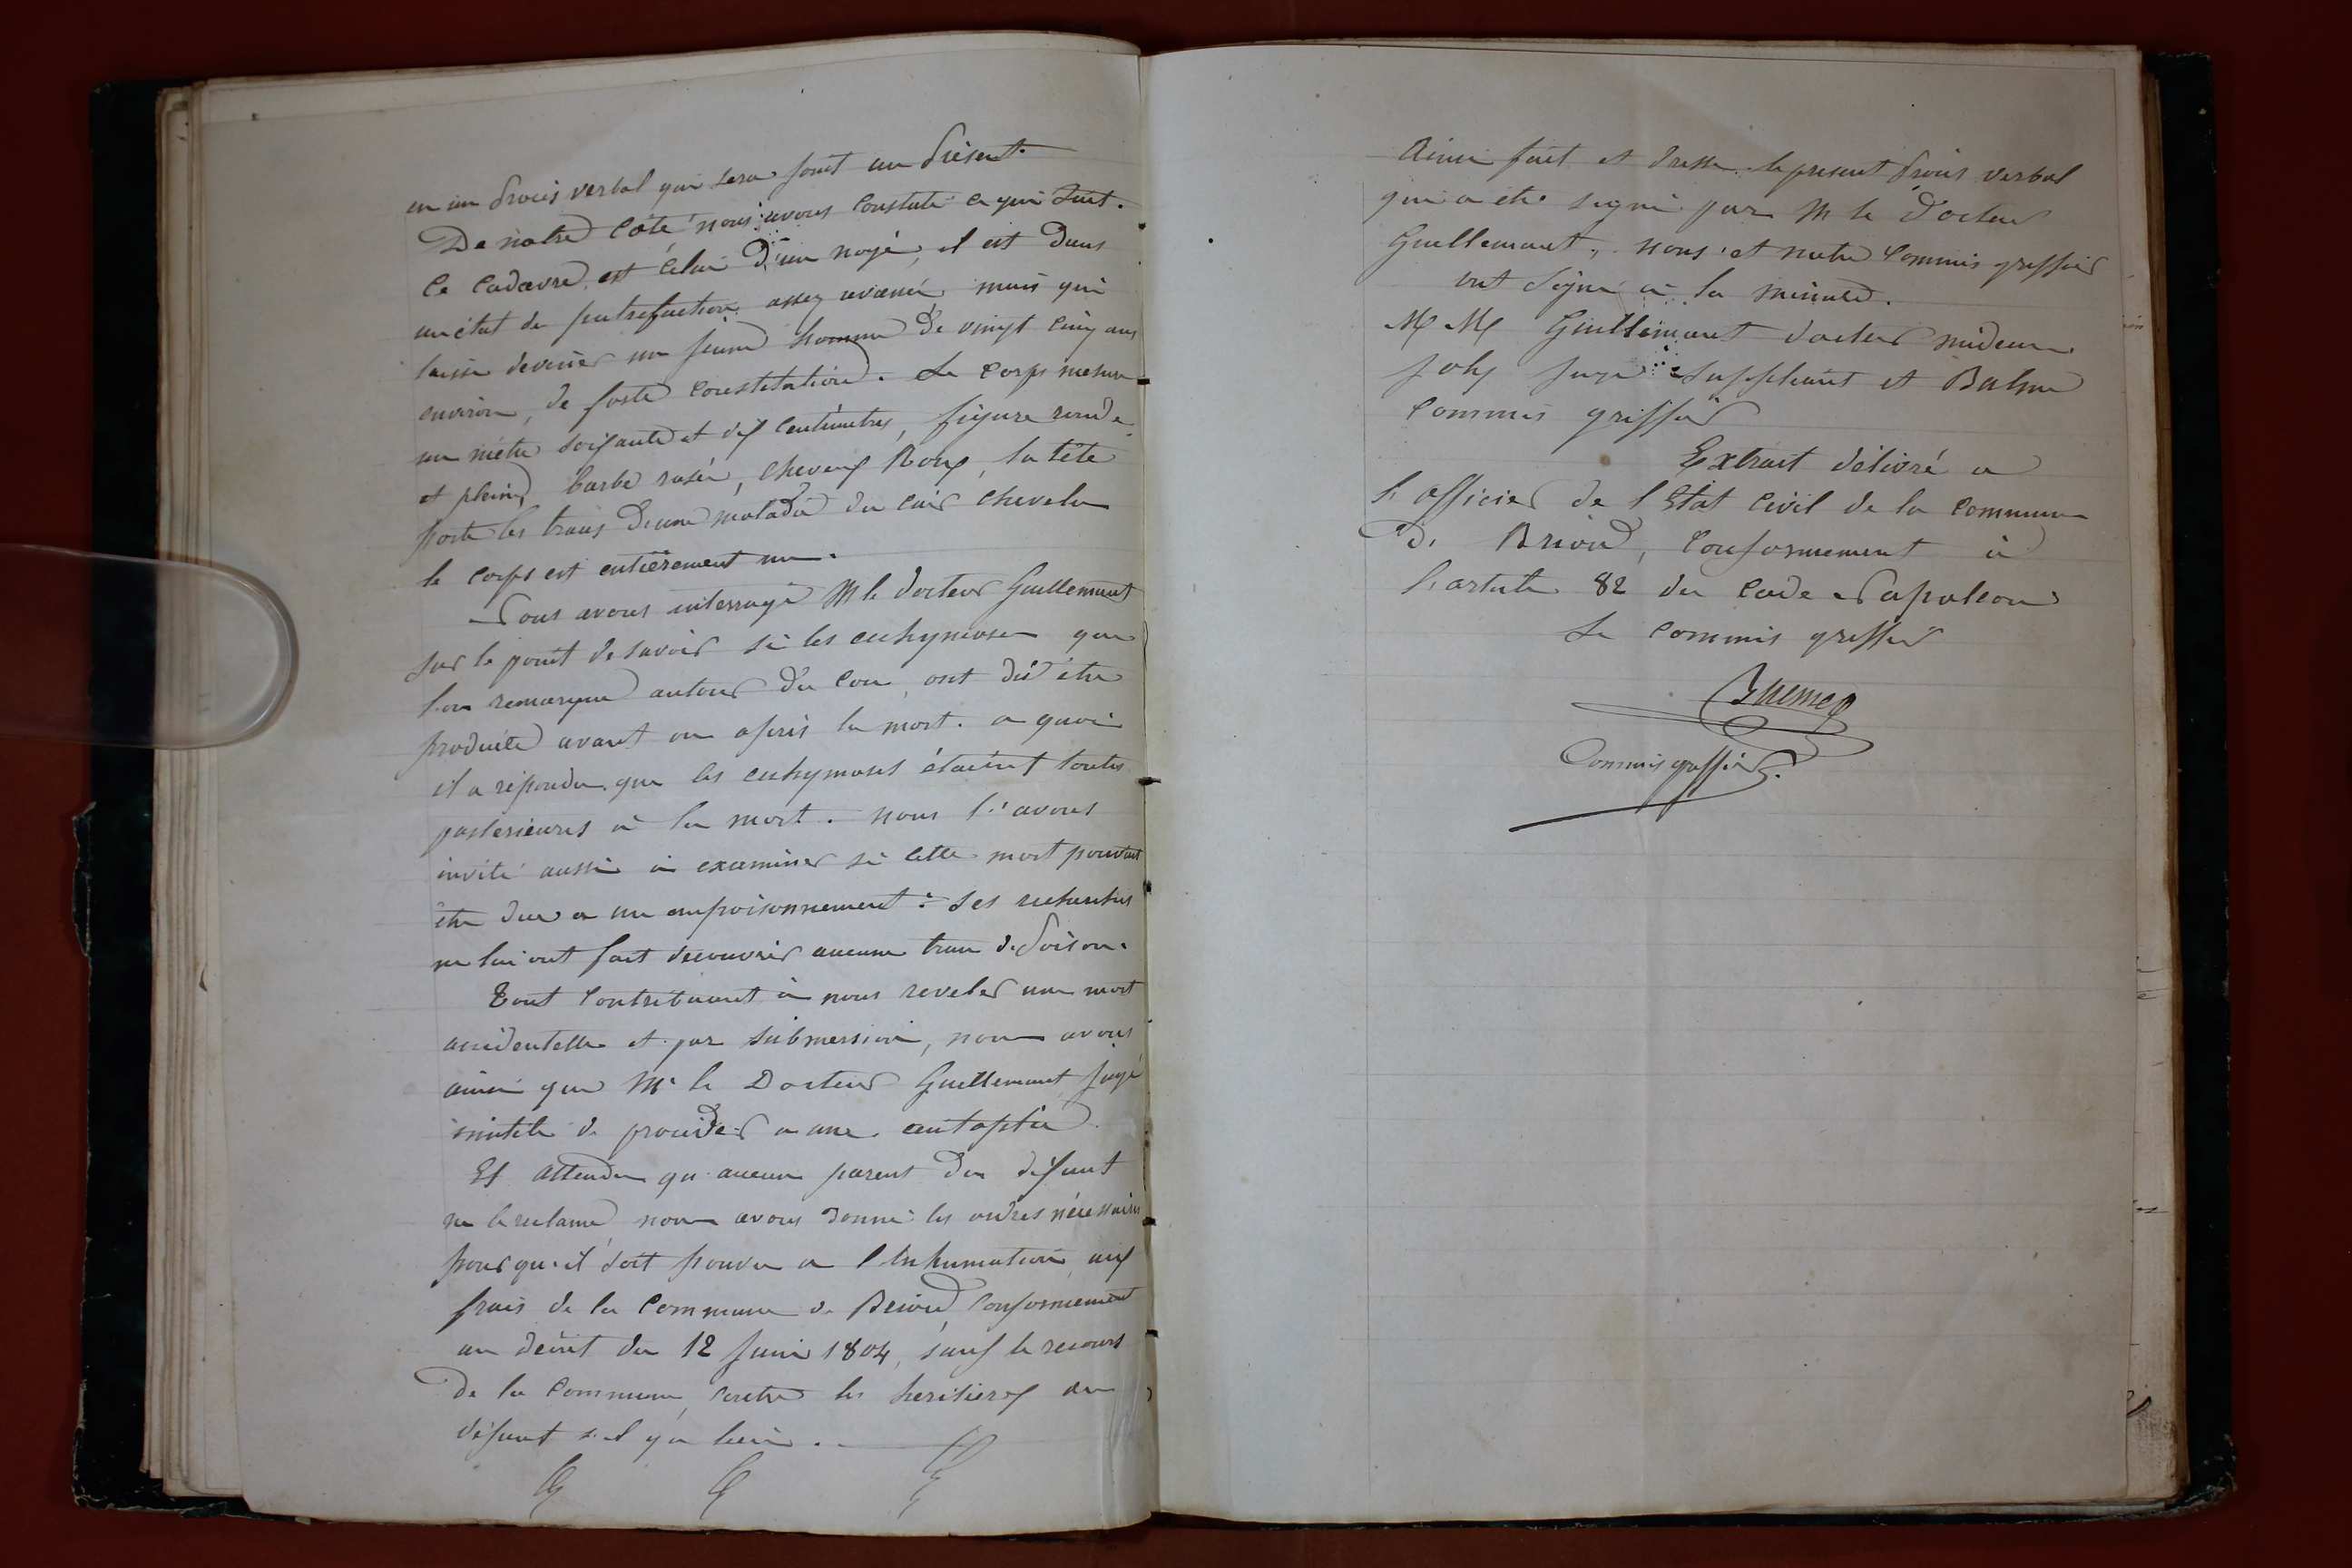 en un Procès verbal qui sera joint au Présent.
De notre Côté nous avons Constaté ce qui Suit.
Ce Cadavre est Celui d'un noyé, il est dans
un état de putrefaction assez avancé mais qui
laisse deviner un jeune homme de vingt Cinq ans
environ, de forte Constitution. Le Corps mesure
un mètre soixante et dix Centimètres, figure ronde
et pleine, barbe rasée, Cheveux Roux, la tête
porte les traces d'une maladie du cuir Chevelu
le Corps est entièrement nu.
Nous avons interrogé M le docteur Guillemaut
sur le point de savoir si les ecchymoses que
l'on remarque autour du Cou, ont dû être
produites avant ou après la mort. a quoi
il a répondu que les ecchymoses étaient toutes
posterieures à la mort. nous l'avons
invité aussi à examiner si Cette mort pouvait
être due a un empoisonnement : Ses recherches
ne lui ont fait decouvrir aucune trace de Poison.
Tout Contribuant à nous reveler une mort
accidentelle et par Submersion, nous avons
ainsi que Mr le Docteur Guillemaut jugé
inutile de proceder a une autopsie.
Et attendu qu'aucun parent du défunt
ne le reclame nous avons donné les ordres nécessaires
pour qu'il soit pourvu a l'inhumation aux
frais de la Commune de Briod, Conformement
au décret du 12 Juin 1804, sauf le recours
de la Commune, Contre les heritiers du
défunt s'il y a lieu.
Ainsi fait et dressé le present Procès verbal
qui a été signé par M le Docteur
Guillemaut, nous et notre Commis greffier
ont Signé à la minute.
M M Guillemaut docteur médecin
Joly juge Suppleant et
Commis greffier
Extrait délivré a
l'officier de l'Etat Civil de la Commune
De Briod, Conformement à
l'article 82 du Code Napoleon
Le Commis greffier
Commis greffier.